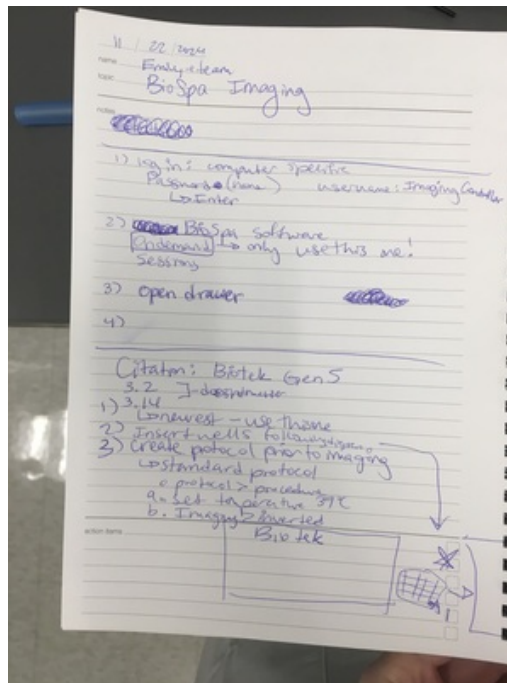 11 / 22 / 2024
name Emily + team
topic BioSpa Imaging
notes
1) log in: computer specific
Password (name) username: Imaging Controller
↳ Enter
2) BioSpa software
Ondemand ↳ only use this one!
Sessions
3) open drawer
4)
Citation: Biotek Gen 5
3.2
1) 3.14
↳ newest - use this one
2) Insert wells following diagram
3) Create protocol prior to imaging
↳ standard protocol
○ protocol > procedure
a. set temperature 37°C
b. Imaging > inverted
action items
Biotek
A1